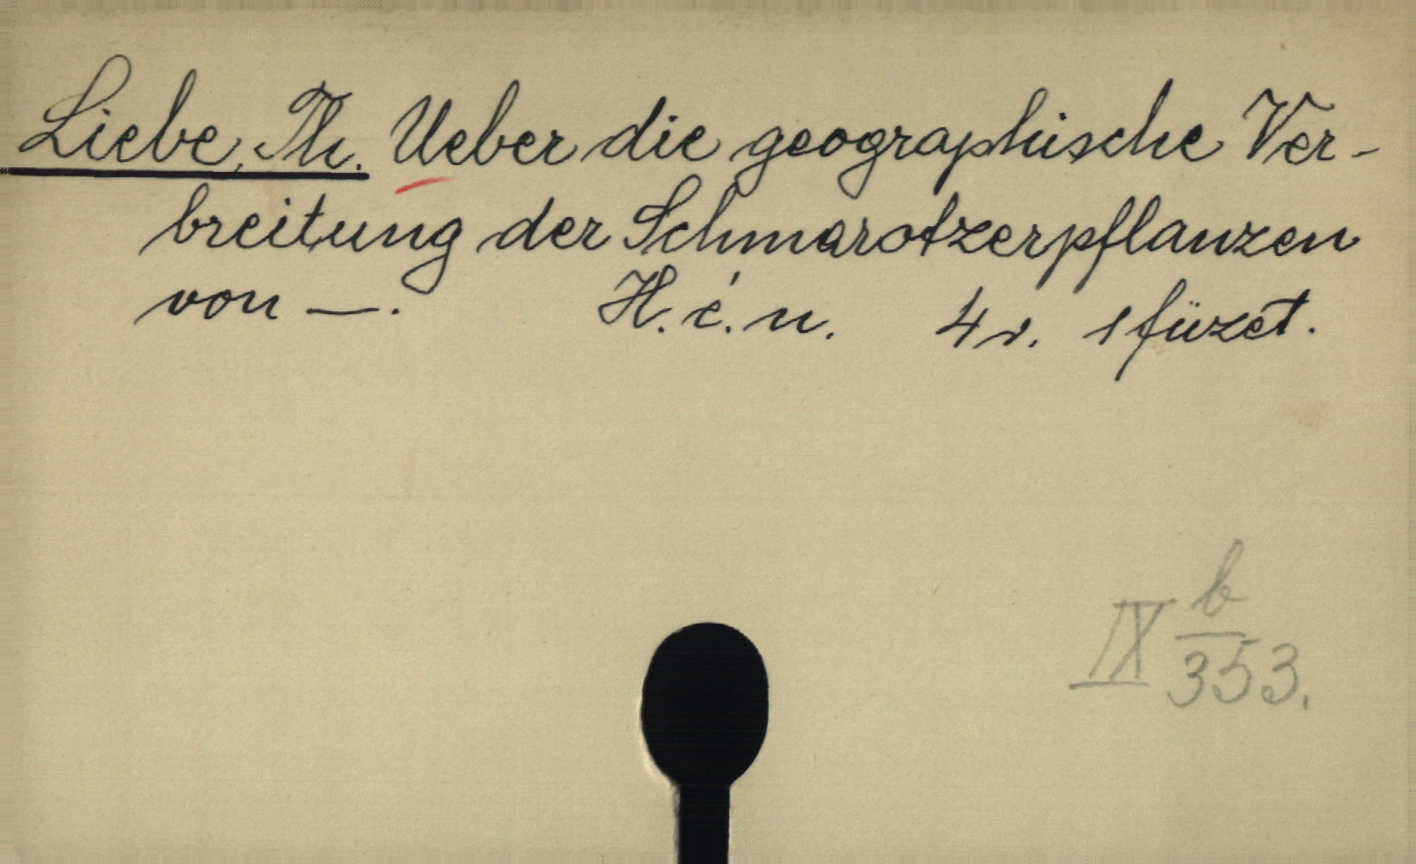 Liebe, Th. Ueber die geographische Ver-
breitung der Schmarotzerpflanzen
von —. H. é. n. 4r. 1 füzet.
IX b/353.